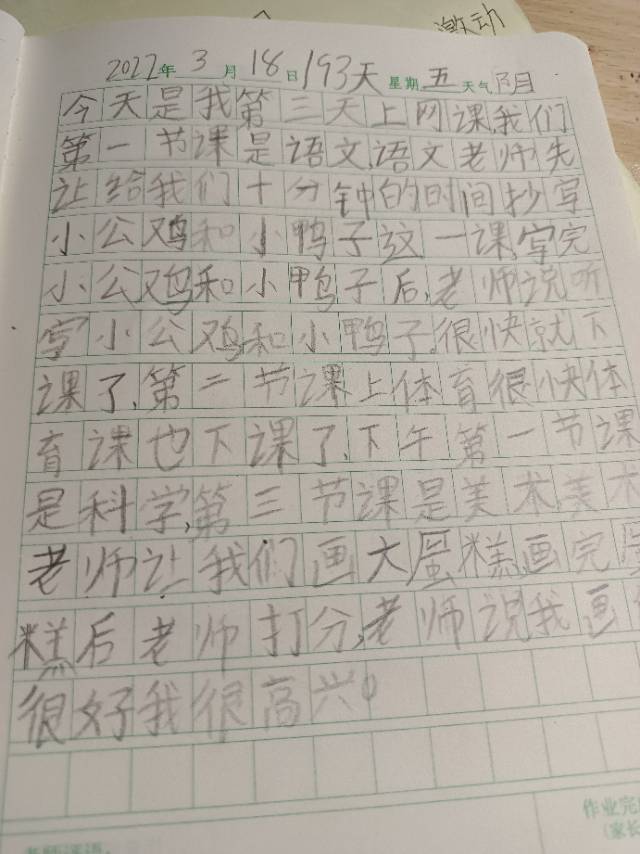 激动
2022年3月18日193天 星期五天气阴
今天是我第三天上网课我们
第一节课是语文,语文老师先
让给我们十分钟的时间抄写
小公鸡和小鸭子这一课,写完
小公鸡和小鸭子后,老师说听
写小公鸡和小鸭子,很快就下
课了,第二节课上体育很快体
育课也下课了,下午第一节课
是科学,第三节课是美术,美术
老师让我们画大蛋糕画完蛋
糕后老师打分,老师说我画
很好我很高兴。
作业完
(家长